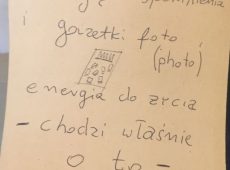 i gazetki foto i
(photo)
energia do życia
- chodzi właśnie
o to -